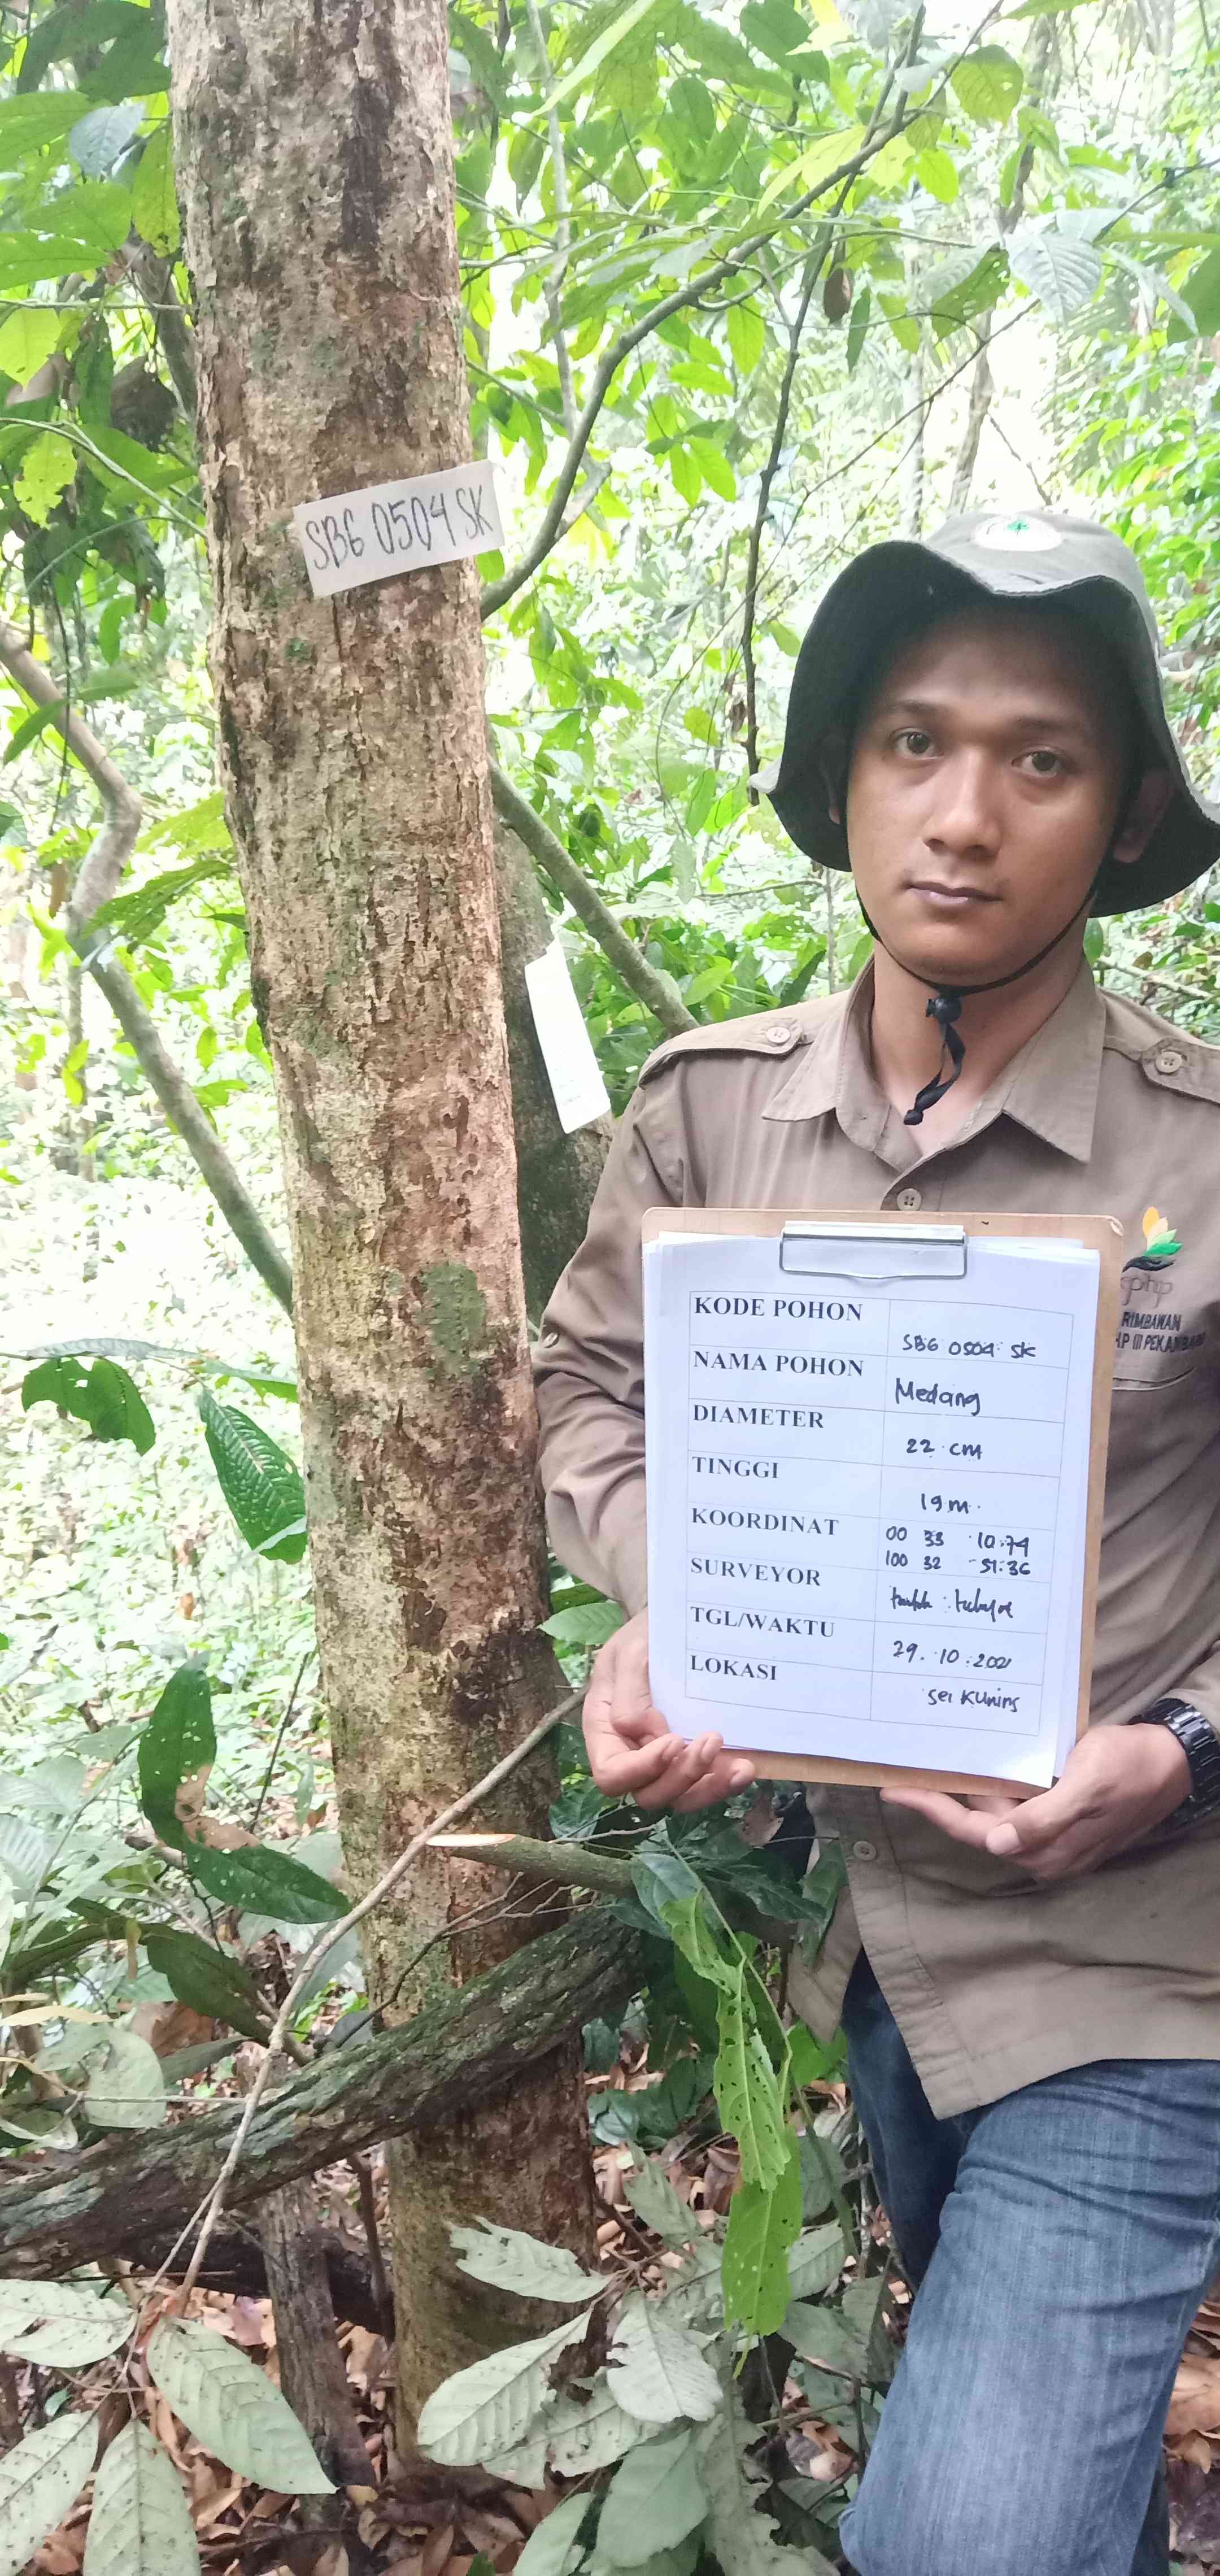 SBG 0504 SK
KODE POHON
SBG 0504 SK
NAMA POHON
Medang
DIAMETER
22 cm
TINGGI
19 m
KOORDINAT
00 33 10.74
100 32 51.36
SURVEYOR
TGL/WAKTU
29.10.2021
LOKASI
Sei Kuning
php
RIMBAWAN
HP III PEKANBARU